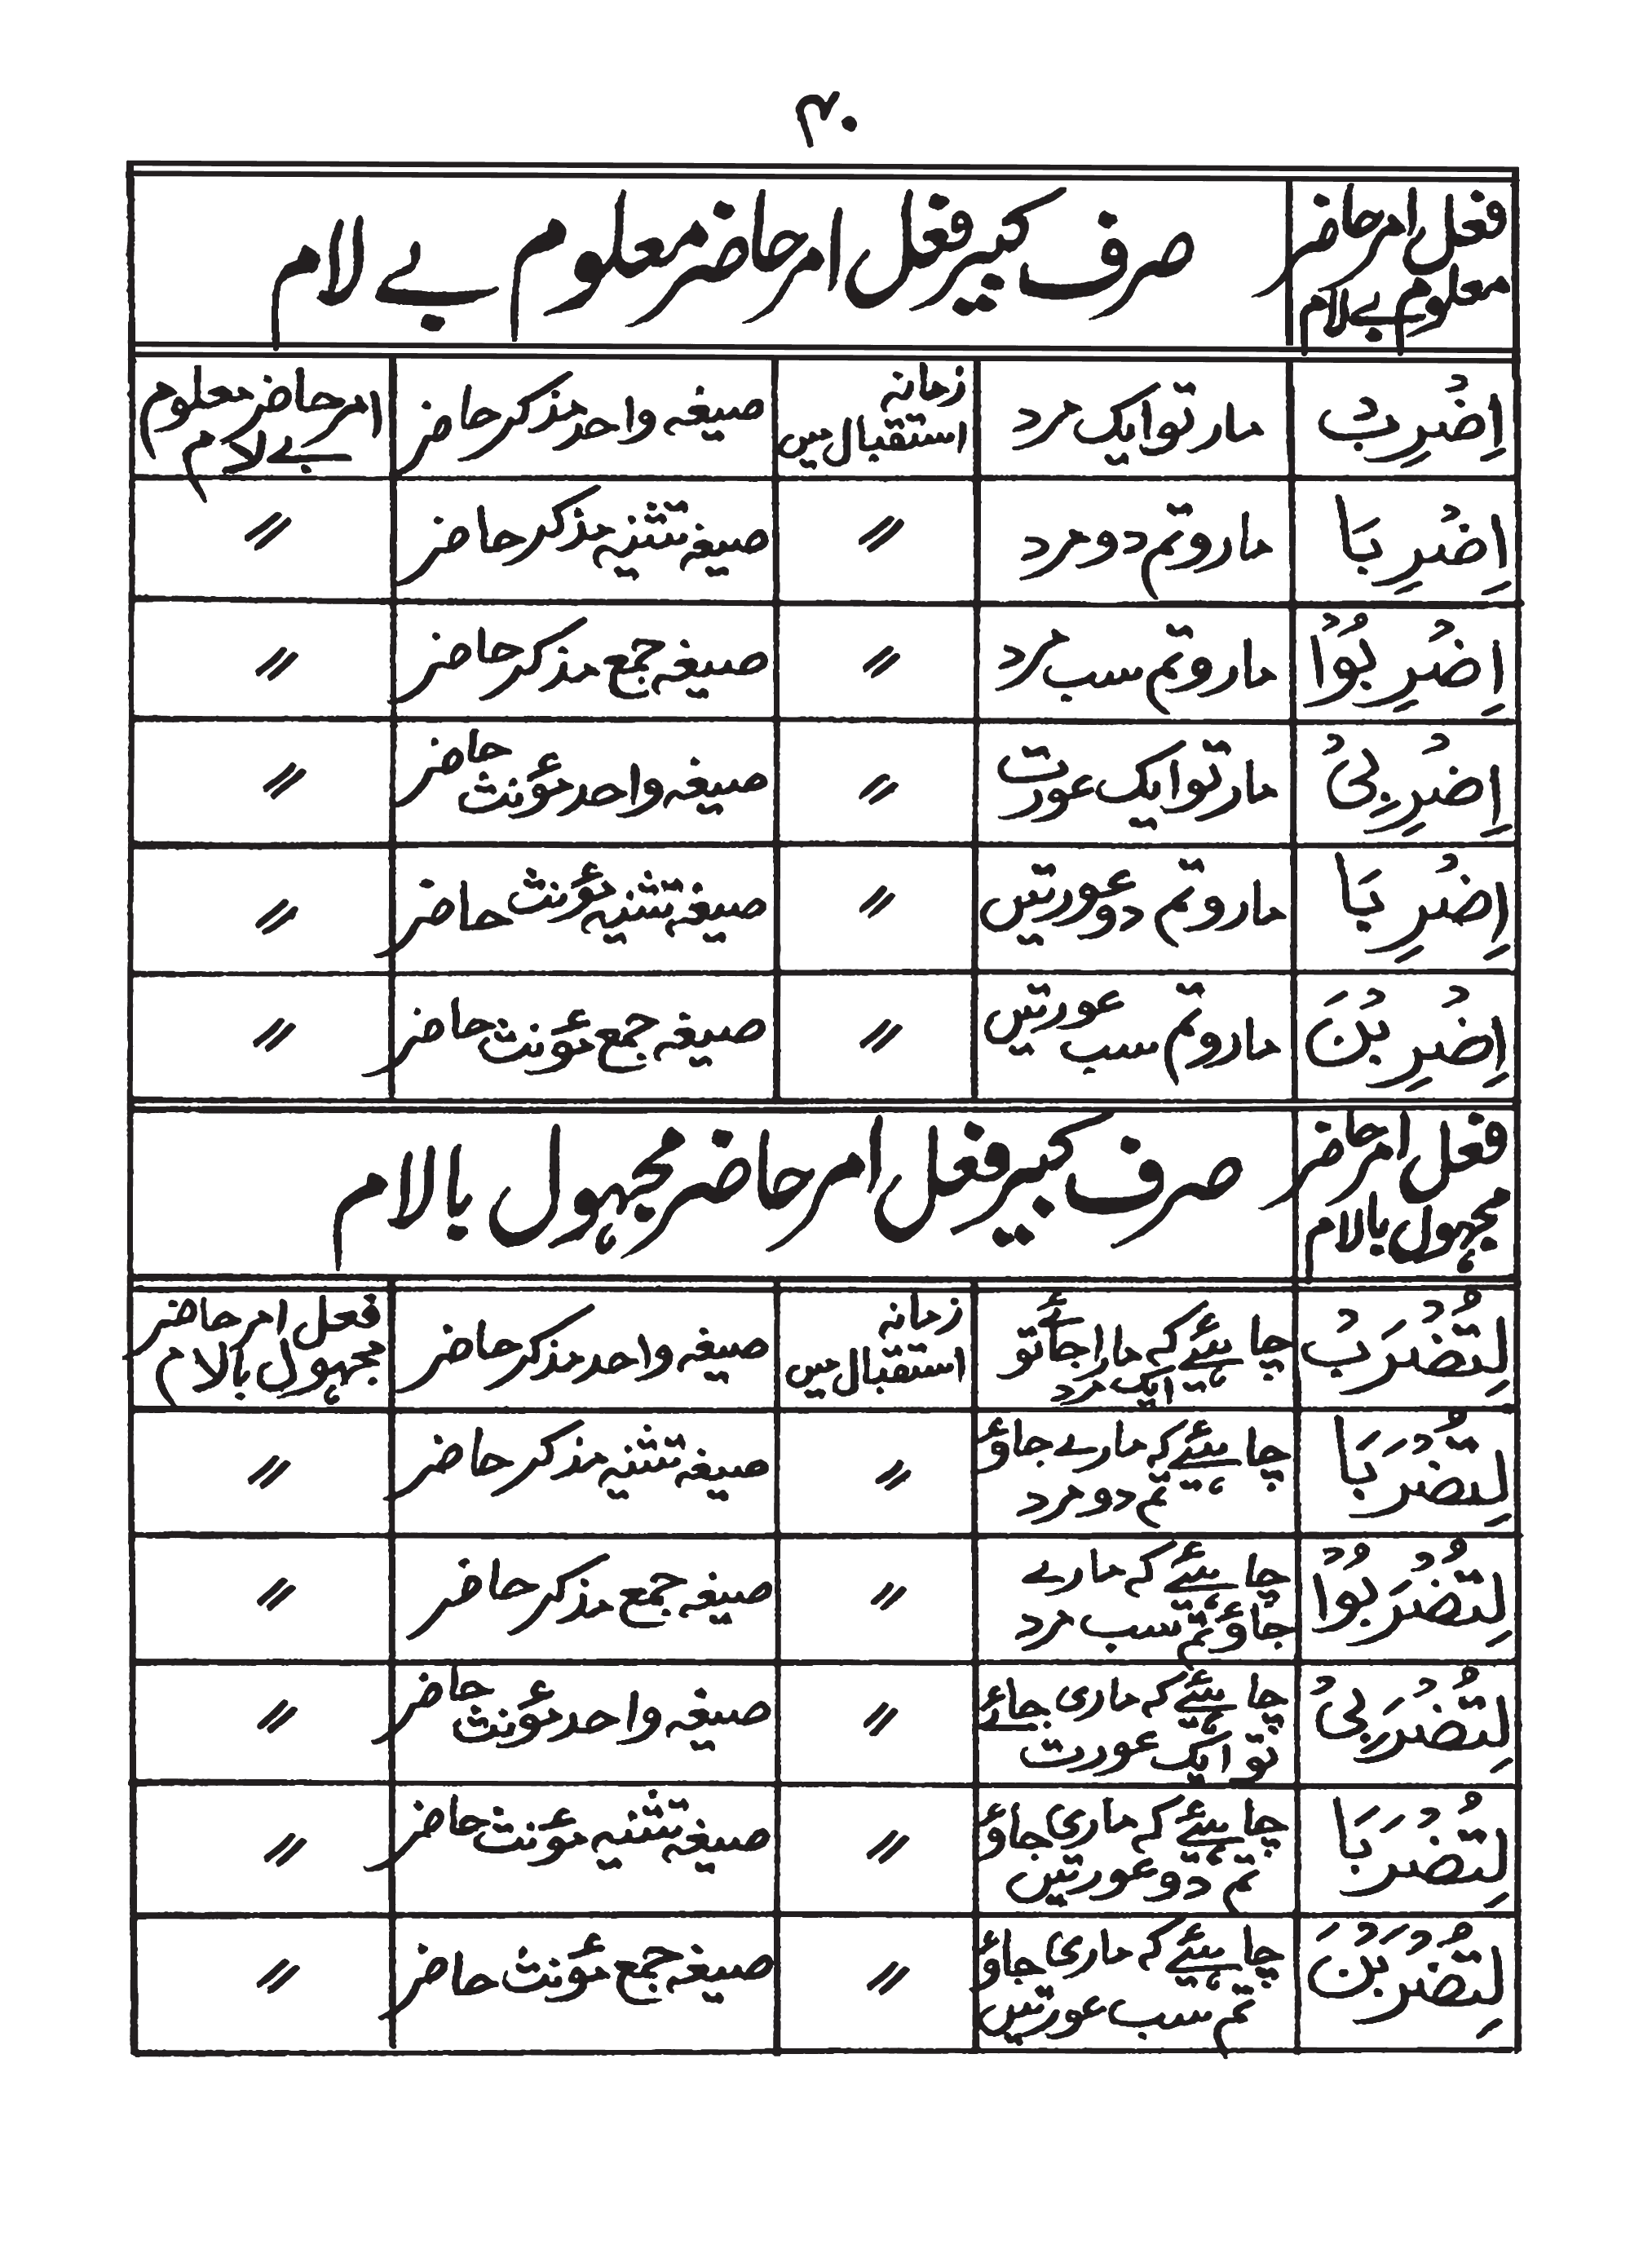 ۴۰
فعل امر حاضر معلوم بے لام صرف کبیر فعل امر حاضر معلوم بے لام
اِضْرِبْ مار تو ایک مرد زمانہ استقبال میں صیغہ واحد مذکر حاضر امر حاضر معلوم بے لام
اِضْرِبَا مارو تم دو مرد // صیغہ تثنیہ مذکر حاضر //
اِضْرِبُوْا مارو تم سب مرد // صیغہ جمع مذکر حاضر //
اِضْرِبِیْ مار تو ایک عورت // صیغہ واحد مؤنث حاضر //
اِضْرِبَا مارو تم دو عورتیں // صیغہ تثنیہ مؤنث حاضر //
اِضْرِبْنَ مارو تم سب عورتیں // صیغہ جمع مؤنث حاضر //
فعل امر حاضر مجہول بالام صرف کبیر فعل امر حاضر مجہول بالام
لِتُضْرَبْ چاہیئے کہ مارا جائے تو ایک مرد زمانہ استقبال میں صیغہ واحد مذکر حاضر فعل امر حاضر مجہول بالام
لِتُضْرَبَا چاہیئے کہ مارے جاؤ تم دو مرد // صیغہ تثنیہ مذکر حاضر //
لِتُضْرَبُوْا چاہیئے کہ مارے جاؤ تم سب مرد // صیغہ جمع مذکر حاضر //
لِتُضْرَبِیْ چاہیئے کہ ماری جائے تو ایک عورت // صیغہ واحد مؤنث حاضر //
لِتُضْرَبَا چاہیئے کہ ماری جاؤ تم دو عورتیں // صیغہ تثنیہ مؤنث حاضر //
لِتُضْرَبْنَ چاہیئے کہ ماری جاؤ تم سب عورتیں // صیغہ جمع مؤنث حاضر //